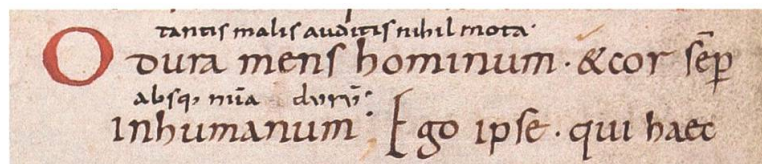 tantis malis auditis nihil mota·
O dura mens hominum· & cor sēp
absq; mīa durū:
Inhumanum: Ego ipse· qui haec